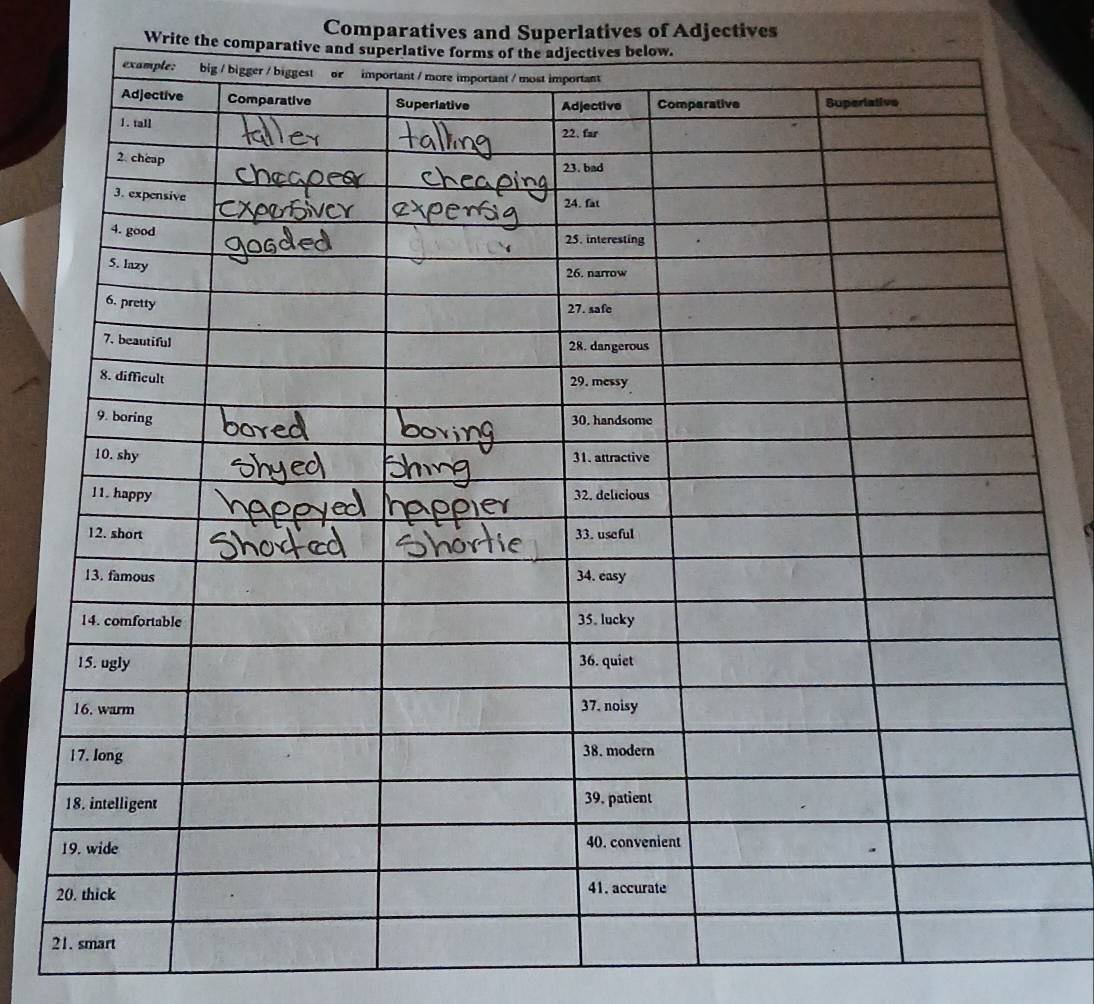 Comparatives and Superlatives of Adjectives
Write the comparative and superlative forms of the adjectives below.
example: big / bigger / biggest or important / more important / most important
Adjective Comparative Superlative Adjective Comparative Superlative
1. tall taller talling 22. far
2. cheap cheapear cheaping 23. bad
3. expensive expensiver expensig 24. fat
4. good gooded 25. interesting
5. lazy 26. narrow
6. pretty 27. safe
7. beautiful 28. dangerous
8. difficult 29. messy
9. boring bored boring 30. handsome
10. shy shyed shing 31. attractive
11. happy happyed happier 32. delicious
12. short shorted shortie 33. useful
13. famous 34. easy
14. comfortable 35. lucky
15. ugly 36. quiet
16. warm 37. noisy
17. long 38. modern
18. intelligent 39. patient
19. wide 40. convenient
20. thick 41. accurate
21. smart